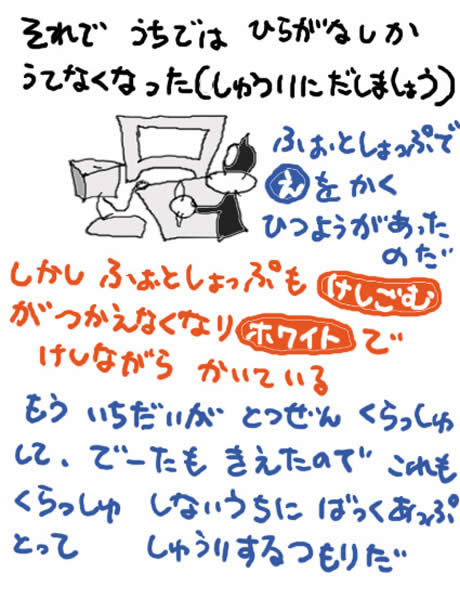 それで うちでは ひらがなしか
うてなくなった(しゅうりにだしましょう)
ふぉとしょっぷで
えをかく
ひつようがあった
のだ
しかし ふぉとしょっぷも けしごむ
がつかえなくなり ホワイト で
けしながら かいている
もう いちだいが とつぜん くらっしゅ
して、でーたも きえたので これも
くらっしゅ しないうちに ばっくあっぷ
とって しゅうりするつもりだ